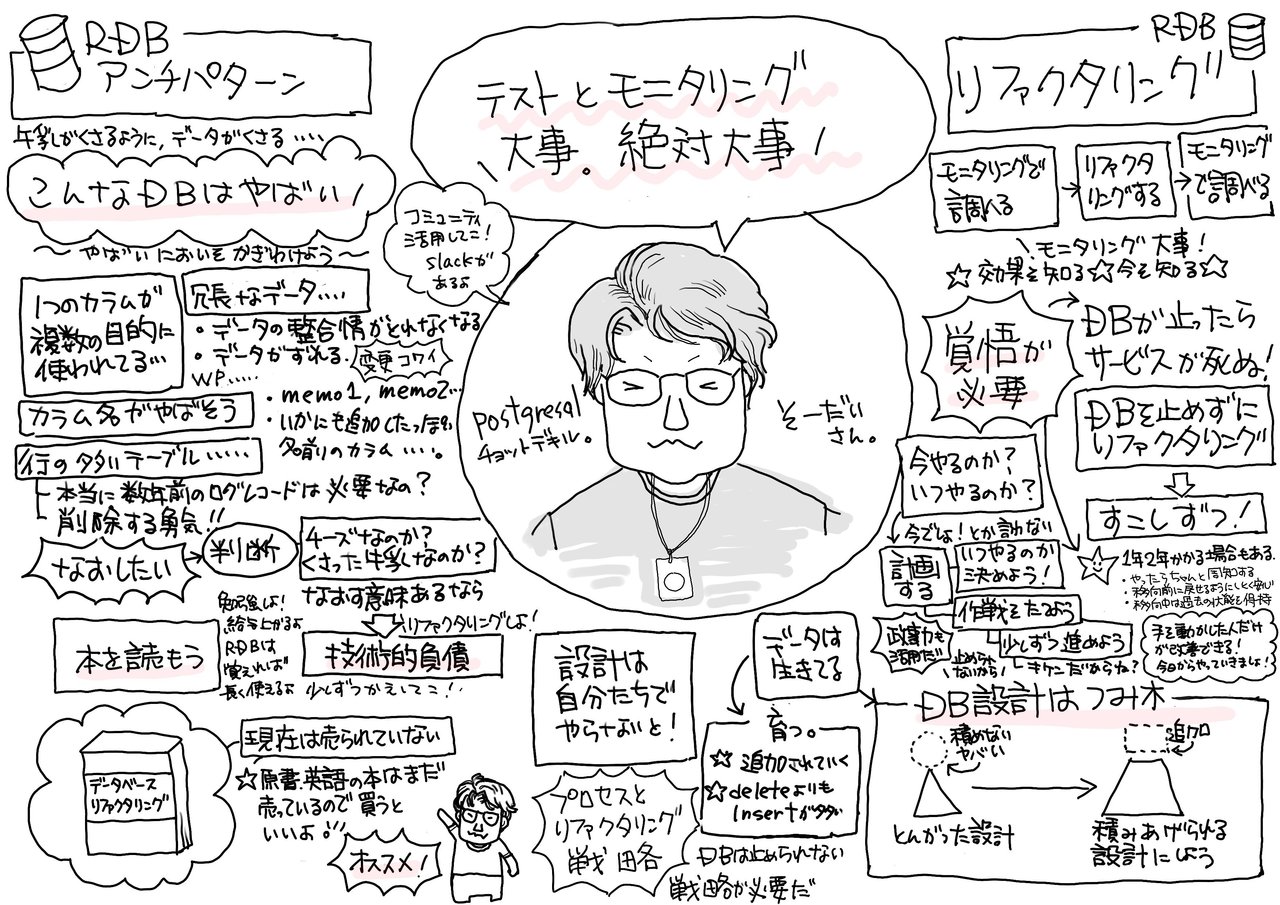 RDB
アンチパターン
牛乳がくさるように、データがくさる‥‥
こんなDBはやばい!
〜やばいにおいをかぎわけよう〜
1つのカラムが
複数の目的に
使われてる…
冗長なデータ‥‥
・データの整合情がとれなくなる
・データがずれる.
変更コワイ
WP‥‥‥
カラム名がやばそう
・memo1, memo2…
・いかにも追加したっぽい
名前のカラム‥‥。
行の多いテーブル‥‥‥
本当に数年前のログレコードは必要なの?
削除する勇気!!
なおしたい
判断
チーズなのか?
くさった牛乳なのか?
なおす意味あるなら
リファクタリングしよ!
技術的負債
少しずつかえしてこ!
勉強しよ!
給与上がるよ
RDBは
覚えれば
長く使えるよ
本を読もう
データベース
リファクタリング
現在は売られていない
☆原書.英語の本はまだ
売っているので買うと
いいよ。
オススメ!
テストとモニタリング
大事。絶対大事!
コミュニティ
活用してこ!
slackが
あるよ
postgresql
チョットデキル。
そーだい
さん。
設計は
自分たちで
やらないと!
プロセスと
リファクタリング
戦略
データは
生きてる
育つ。
☆追加されていく
☆deleteよりも
Insertが多い
DBは止められない
戦略が必要だ
RDB
リファクタリング
モニタリングで
調べる
リファクタ
リングする
モニタリング
で調べる
モニタリング大事!
☆効果を知る☆今を知る☆
覚悟が
必要
DBが止ったら
サービスが死ぬ!
DBを止めずに
リファクタリング
すこしずつ!
今やるのか?
いつやるのか?
今でしょ!とか言わない
計画
する
いつやるのか
決めよう!
作戦をたてよう
少しずつ進めよう
キケンだからね?
政治力も
活用だ
止められ
ないから!
1年2年かかる場合もある.
・やったらちゃんと周知する
・移行中は過去の状態を保持
手を動かした人だけ
が改善できる!
今日からやっていきましょ!
DB設計はつみ木
積めない
ヤバい
とんがった設計
追加
積みあげられる
設計にしよう